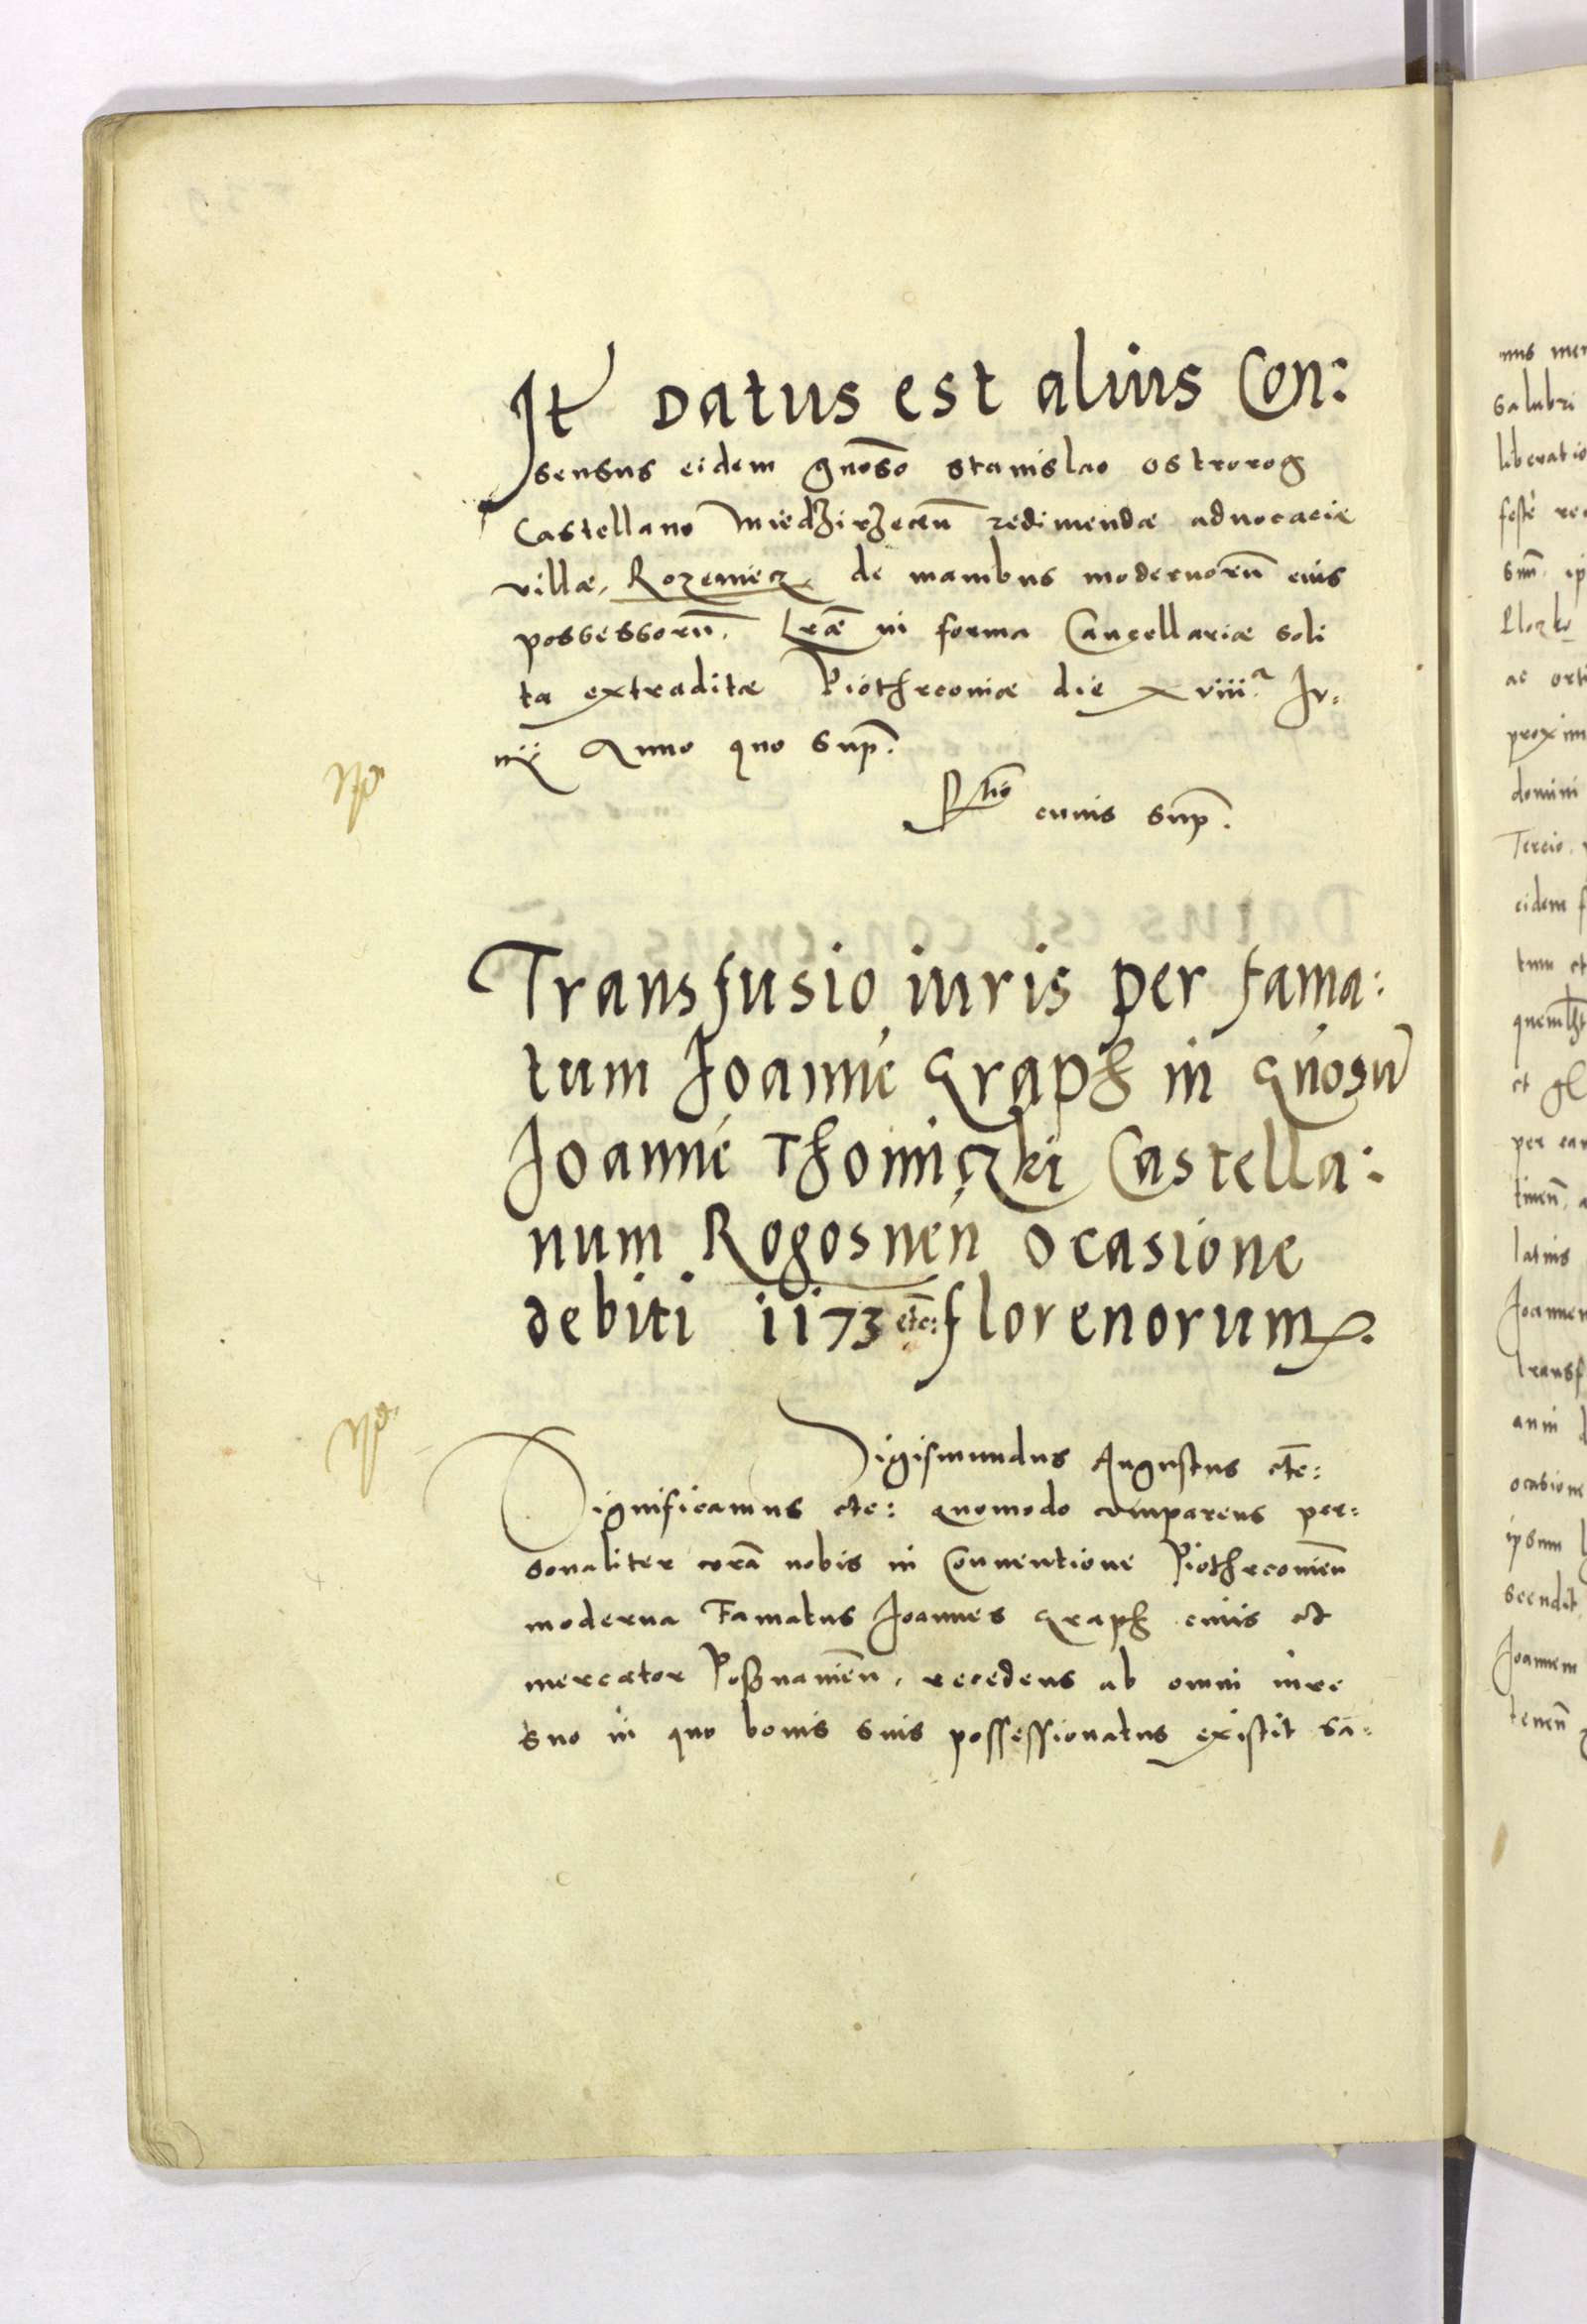 It Datus est alius Con:
sensus eidem gnoso Stanislao Ostrorog
Castellano Miedzirzecen redimendæ advocaciæ
villæ, Rozemiecz, de manibus modernorū eius
possessorū. Lræ in forma Cancellariæ soli
ta extraditæ Piothrcoviæ die xviii.a Iu:
nij Anno quo sup.
Rtio cuius sup.
Transfusio iuris per fama:
tum Joannē Graph in Gnosū
Joannē Thomiczki Castella:
num Rogosnen ocasione
debiti 1173 etc: florenorum.
Sigismundus Augustus etc:
Significamus etc: quomodo comparens per:
sonaliter corā nobis in Conventione Piothrcovien
moderna Famatus Joannes Graph civis et
mercator Posnanien, recedens ab omni iure
suo in quo bonis suis possessionatus existit sā:
nus men
salubri
liberatio
ac orti
proxim
domini
Tercio
eidem
tum et
et
per ean
latius
Joannem
transf
anni
ocasione
ipsum
Joannem